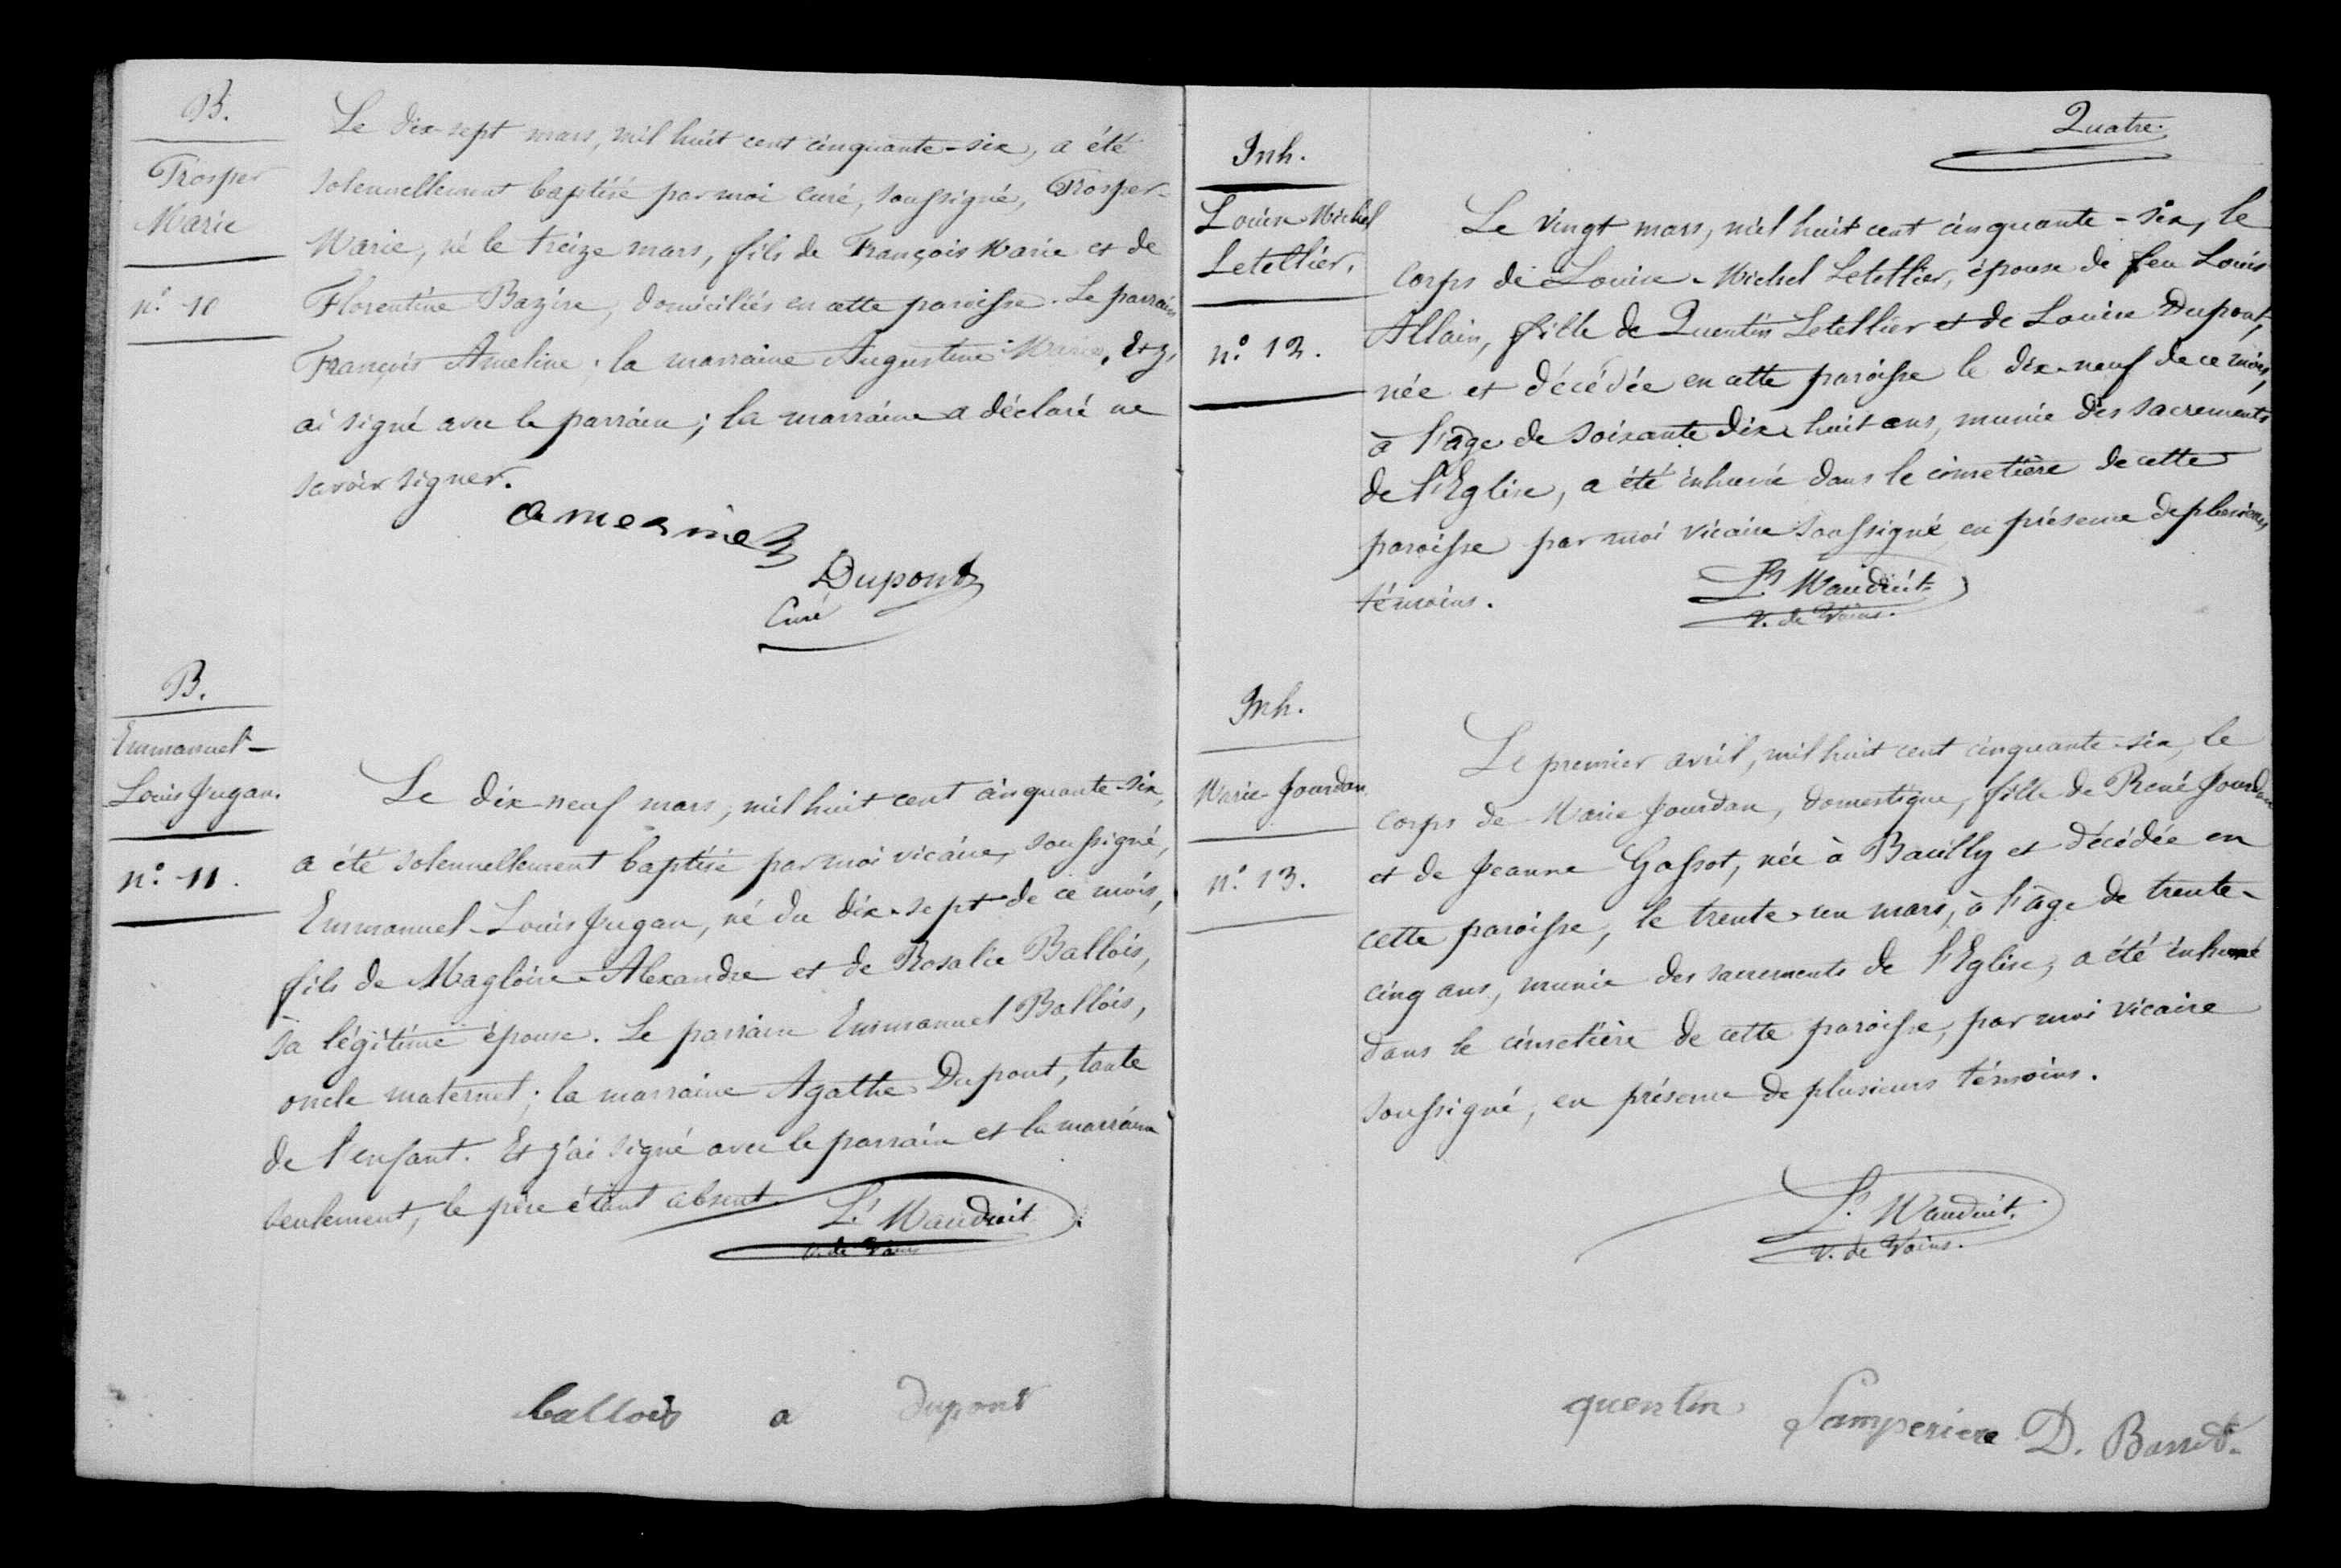 B.
Prosper
Marie
n.º 10
Le dix-sept mars, mil huit cent cinquante-six, a été
solennellement baptisé par moi curé, soussigné, Prosper-
Marie, né le treize mars, fils de François Marie et de
Florentine Bazire, domiciliés en cette paroisse. Le parrain
François Ameline; la marraine Augustine Marie. Et j'
ai signé avec le parrain; la marraine a déclaré ne
savoir signer.
Dupont
Curé
B.
Emmanuel-
Louis Jugan.
n.º 11.
Le dix-neuf mars, mil huit cent cinquante-six,
a été solennellement baptisé par moi vicaire, soussigné,
Emmanuel-Louis Jugan, né du dix-sept de ce mois,
fils de Magloire-Alexandre et de Rosalie Ballois,
sa légitime épouse. Le parrain Emmanuel Ballois,
oncle maternel; la marraine Agathe Dupont, tante
de l'enfant. Et j'ai signé avec le parrain et la marraine
seulement, le père étant absent.
L.s Mauduit
v. de Vains
ballois a Dupont
Quatre.
Inh.
Louise-Michel
Letellier.
n.º 12.
Le vingt mars, mil huit cent cinquante-six, le
corps de Louise-Michel Letellier, épouse de feu Louis
Allain, fille de Quentin Letellier et de Louise Dupont,
née et décédée en cette paroisse le dix-neuf de ce mois,
à l'âge de soixante dix-huit ans, munie des sacrements
de l'Eglise, a été inhumé dans le cimetière de cette
paroisse par moi vicaire soussigné, en présence de plusieurs
témoins.
L.s Mauduit
v. de Vains.
Inh.
Marie-Jourdan
n.º 13.
Le premier avril, mil huit cent cinquante-six, le
corps de Marie Jourdan, domestique, fille de René Jourdan
et de Jeanne Gassot, née à Bacilly et décédée en
cette paroisse, le trente-un mars, à l'âge de trente-
cinq ans, munie des sacrements de l'Eglise, a été inhumé
dans le cimetière de cette paroisse, par moi vicaire
soussigné, en présence de plusieurs témoins.
L.s Mauduit.
v. de Vains.
quentin Samperiere D. Basset